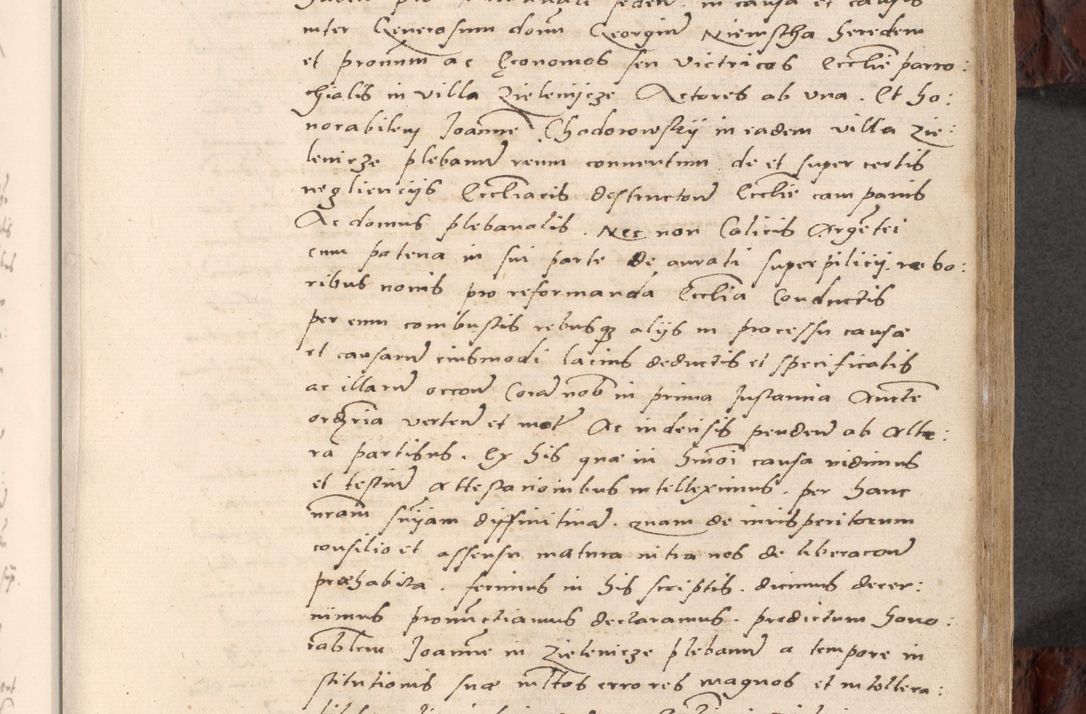 inter Generosum domũ Georgiũ Niemstha heredem
et pronum ac Economos seu vietricos Ecclie parro:
chialis in villa Zielenijcze Actores ab vna. Et ho:
norabilem Joannẽ Chodorowskij in eadem villa Zie:
lenicze plebanũ reum conuentum de et super certis
negliencijs Eccliacis destructoũ Ecclie campanis
Ac domus plebanalis. Nec non Calicis Argẽtei
cum patena in sui parte de aurati superpilicij robo:
ribus nouis pro reformanda Ecclia Conductis
per eum combustis rebusq alijs in processu causæ
et causarũ eiusmodi lacius deductis et specificatis
ac illarũ occoũ Corã nob in prima Instantia Aucte
ordria verteñ et mot Ac indecisis pendeñ ab alte:
ra partibus. Ex his quæ in hmoi causa vidimus
et testiũ attestacionibus intelleximus. per hanc
nram sniam diffinitiuã. quam de iurisperitorum
consilio et assensu matura intra nos de liberacoñ
præhabita. ferimus in his scriptis. dicimus decer:
nimus pronũctiamus declaramus. predictum hono:
rablem Joannẽ in Zielenicze plebanũ a tempore in
stitutionis suæ mltos errores magnos et intollera: